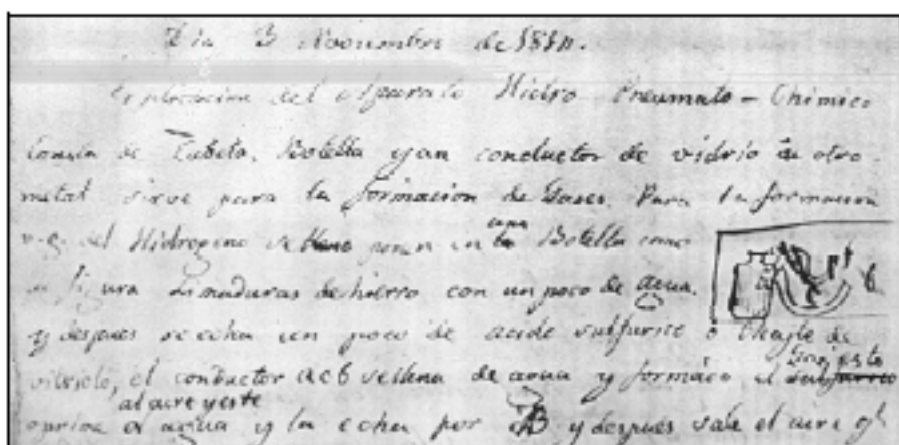 Dia 3 Novumbre de 1814.
Esplicacion del Aparato Hidro Pneumato - Chimico
Consta de Cubeta, Botella y un conductor de vidrio ú otro
metal sirve para la formacion de Gases. Para la formacion
v.g. del Hidrogeno se ponen en una Botella como
figura limaduras de hierro con un poco de agua.
y despues se echa un poco de acido sulfurico ó de
vitriolo, el conductor acb se llena de agua y formado el Gas, esto
al aire y este
oprime al agua y la echa por y despues sale el aire
a c b